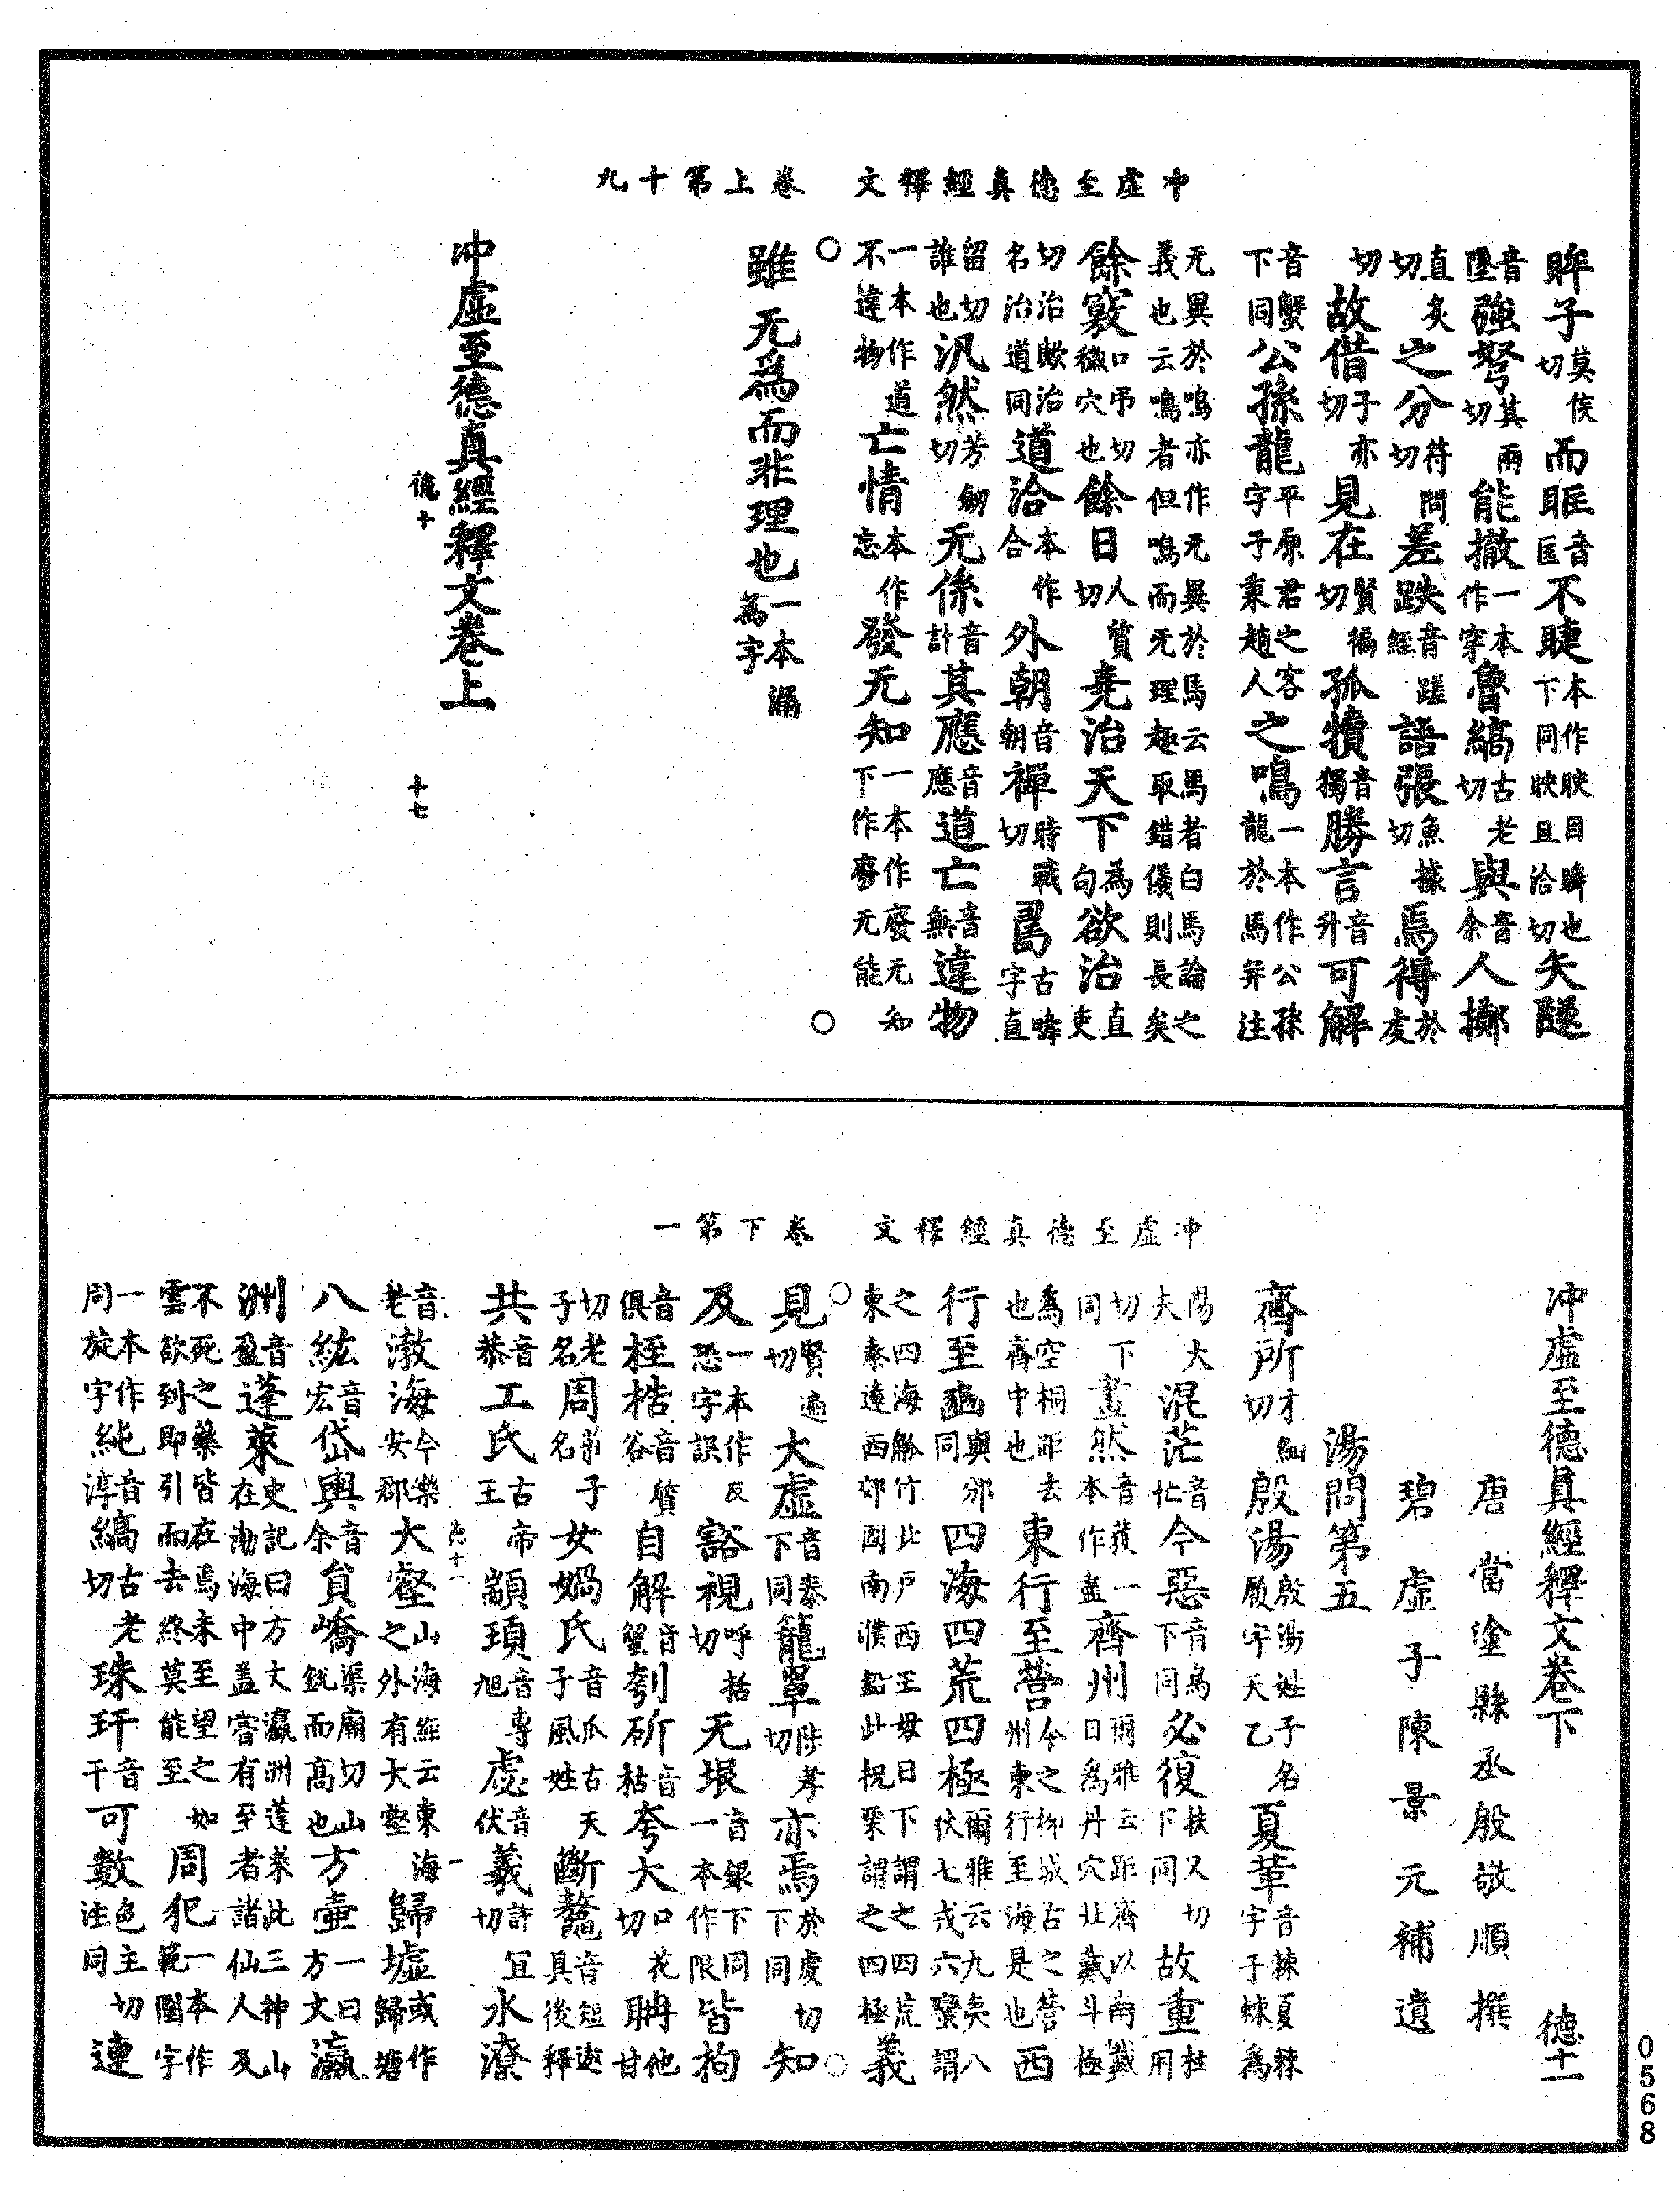 冲虛至德真經釋文　卷上第十九
眸子莫侯切而眶音匡不睫本作䀹目瞬也下同䀹且洽切矢隧
音墜強弩其兩切能撤一本作穿魯縞古老切與音余人擲
直炙切之分符問切差跌音蹉經語張魚據切焉得於虔
切故借子亦切見在賢徧切孤犢音獨勝言音升可解
音蟹下同公孫龍平原君之客字子秉趙人之鳴一本作公孫龍於馬弈注
无異於鳴亦作无異於馬云馬者白馬論之義也云鳴者但鳴而无理趣取錯儀則長矣
餘竅口弔切穢穴也餘日人質切堯治天下為句欲治直吏
切治歟治名治道同道洽本作合外朝音朝禪時戰切𠷎古疇字直
留切誰也汎然芳劒切无係音計其應音應道亡音無違物
一本作道不違物亡情本作忘發无知一本作廢无知下作廢无能
雖无為而非理也一本漏為字
冲虛至德真經釋文卷上
德十　十七
冲虛至德真經釋文　卷下第一
冲虛至德真經釋文卷下　德十一
唐當塗縣丞殷敬順撰
碧虛子陳景元補遺
湯問第五
齊所才細切殷湯殷湯姓子名履字天乙夏革音棘夏棘字子棘為
湯大夫混茫音忙今惡音烏下同必復扶又切下同故重柱用
切下同畫然音獲一本作盡齊州爾雅云距齊以南戴日為丹穴北戴斗極
為空桐距去也齊中也東行至營今之柳城古之營州東行至海是也西
行至豳與邠同四海四荒四極爾雅云九夷八狄七戎六蠻謂
之四海觚竹北戶西王母日下謂之四荒東泰遠西邠國南濮鈆北祝栗謂之四極義
見賢遍切大虛音泰下同籠罩陟孝切亦焉於虔切下同知
及一本作反恐字誤豁視呼括切无垠音銀下同一本作限皆拘
音俱桎梏音質谷自解音蟹刳斫音枯夸大口花切聃他甘
切老子名周弟子名女媧氏音瓜古天子風姓斷鼇音短遨具後釋
共音恭工氏古帝王顓頊音專旭虙音伏羲許冝切水潦
音老渤海今樂安郡大壑山海經云東海之外有大壑歸墟或作歸塘
八紘音宏岱輿音余負嶠渠廟切山銳而高也方壺一曰方丈瀛
洲音盈蓬萊史記曰方丈瀛洲蓬萊此三神山在渤海中蓋嘗有至者諸仙人及
不死之藥皆在焉未至望之如雲欲到即引而去終莫能至周犯一本作範圍字
一本作周旋字純音淳縞古老切珠玕音干可數色主切注同連
德十一　一
0568